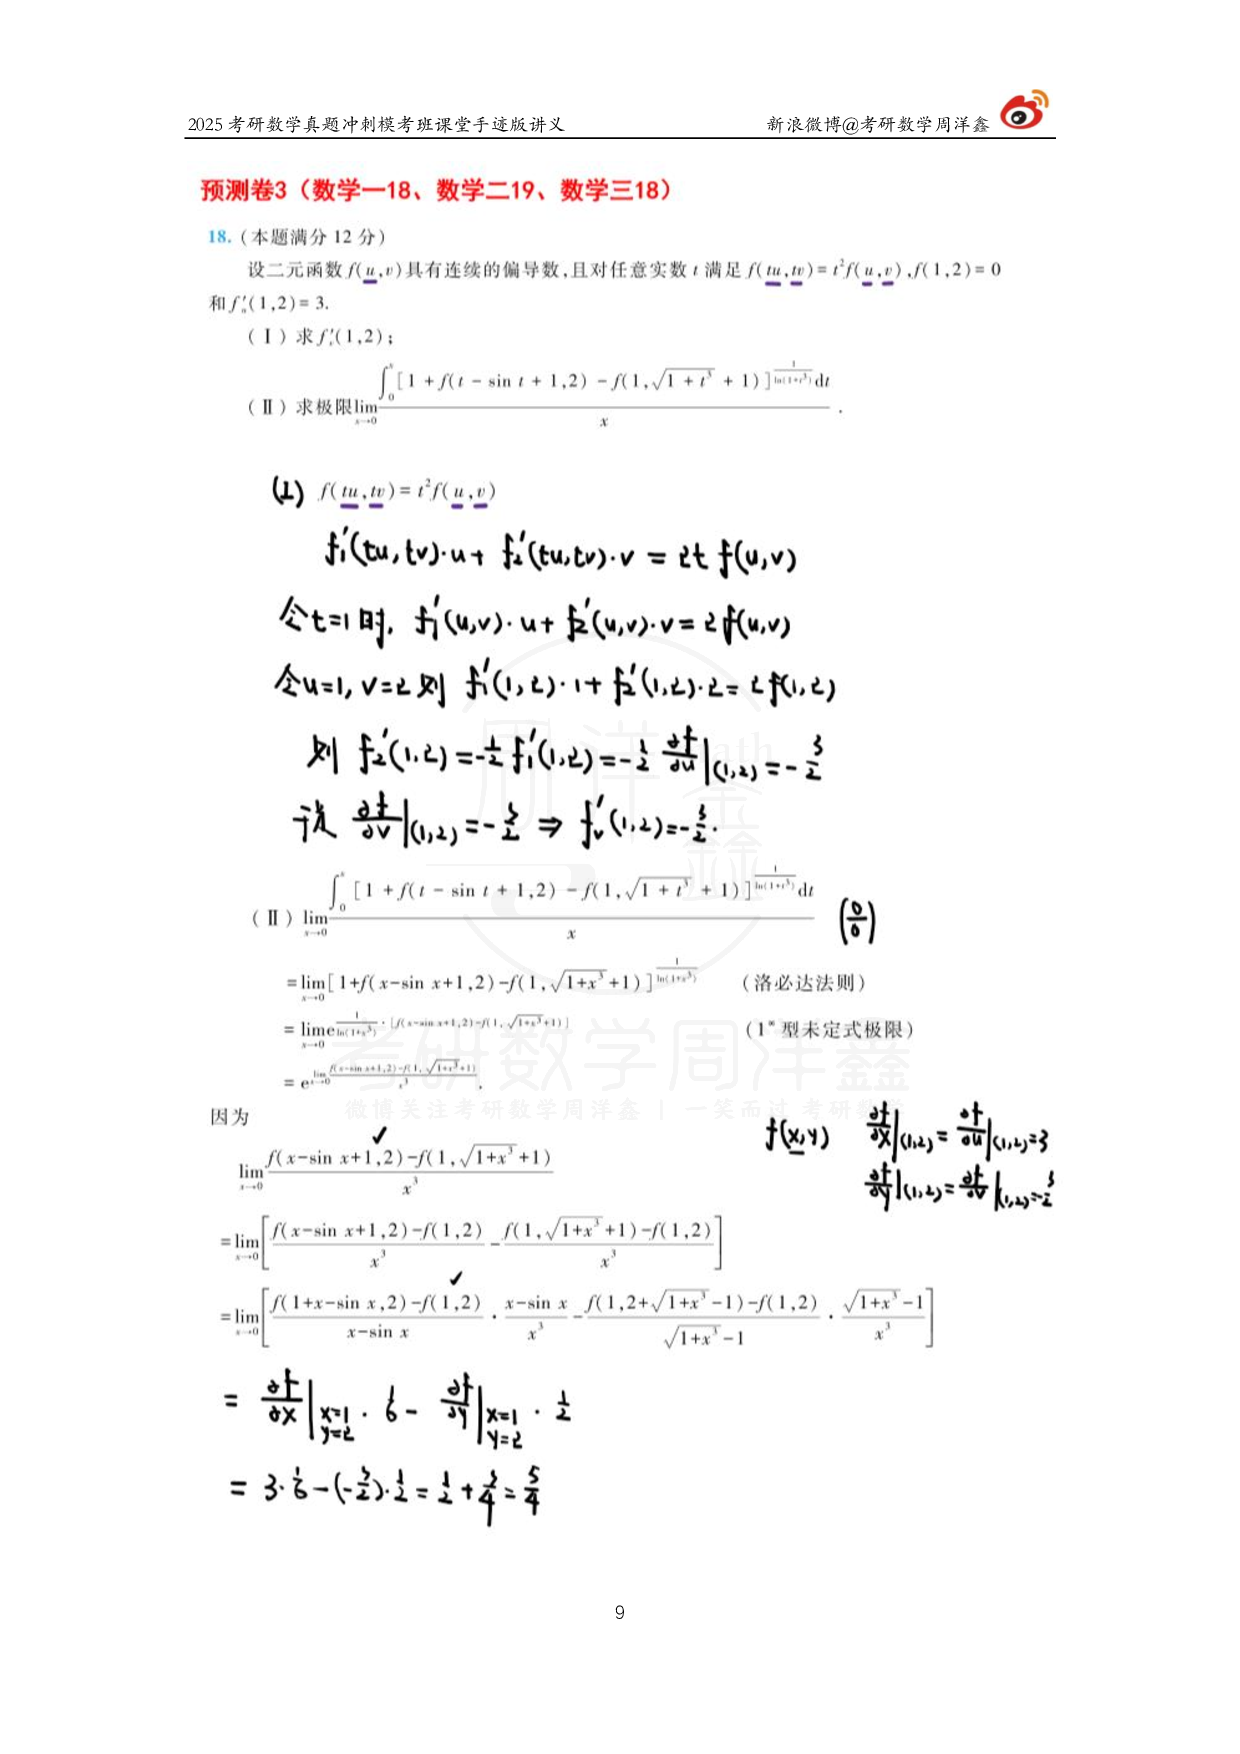 2025考研数学真题冲刺模考班课堂手迹版讲义 新浪微博@考研数学周洋鑫
预测卷3（数学一18、数学二19、数学三18）
18.（本题满分 12 分）
设二元函数 f(u,v)具有连续的偏导数,且对任意实数 t 满足 f(tu,tv)=t²f(u,v),f(1,2)=0
和 f'ᵤ(1,2)=3.
（Ⅰ）求 f'ᵥ(1,2);
（Ⅱ）求极限 lim_{x→0} ∫₀ˣ [1+f(t-sin t+1,2)-f(1,√(1+t³)+1)]^{1/ln(1+t³)}dt / x .
(1) f(tu,tv)=t²f(u,v)
f₁'(tu,tv)·u+f₂'(tu,tv)·v=2t f(u,v)
令t=1时, f₁'(u,v)·u+f₂'(u,v)·v=2f(u,v)
令u=1,v=2则 f₁'(1,2)·1+f₂'(1,2)·2=2f(1,2)
则 f₂'(1,2)=-1/2 f₁'(1,2)=-1/2 ∂f/∂u|(1,2)=-3/2
于是 ∂f/∂v|(1,2)=-3/2 ⇒ fᵥ'(1,2)=-3/2.
（Ⅱ）lim_{x→0} ∫₀ˣ [1+f(t-sin t+1,2)-f(1,√(1+t³)+1)]^{1/ln(1+t³)}dt / x (0/0)
=lim_{x→0}[1+f(x-sin x+1,2)-f(1,√(1+x³)+1)]^{1/ln(1+x³)} （洛必达法则）
=lim_{x→0} e^{1/ln(1+x³)·[f(x-sin x+1,2)-f(1,√(1+x³)+1)]} （1^∞ 型未定式极限）
=e^{lim_{x→0} [f(x-sin x+1,2)-f(1,√(1+x³)+1)]/x³}.
考研数学周洋鑫
微博关注考研数学周洋鑫 | 一笑而过 考研数学
因为
f(x,y) ∂f/∂x|(1,2)=∂f/∂u|(1,2)=3
∂f/∂y|(1,2)=∂f/∂v|(1,2)=-3/2
lim_{x→0} [f(x-sin x+1,2)-f(1,√(1+x³)+1)]/x³
=lim_{x→0}[(f(x-sin x+1,2)-f(1,2))/x³-(f(1,√(1+x³)+1)-f(1,2))/x³]
=lim_{x→0}[(f(1+x-sin x,2)-f(1,2))/(x-sin x)·(x-sin x)/x³-(f(1,2+√(1+x³)-1)-f(1,2))/(√(1+x³)-1)·(√(1+x³)-1)/x³]
= ∂f/∂x|x=1 y=2 · 1/6 - ∂f/∂y|x=1 y=2 · 1/2
= 3·1/6-(-3/2)·1/2=1/2+3/4=5/4
9